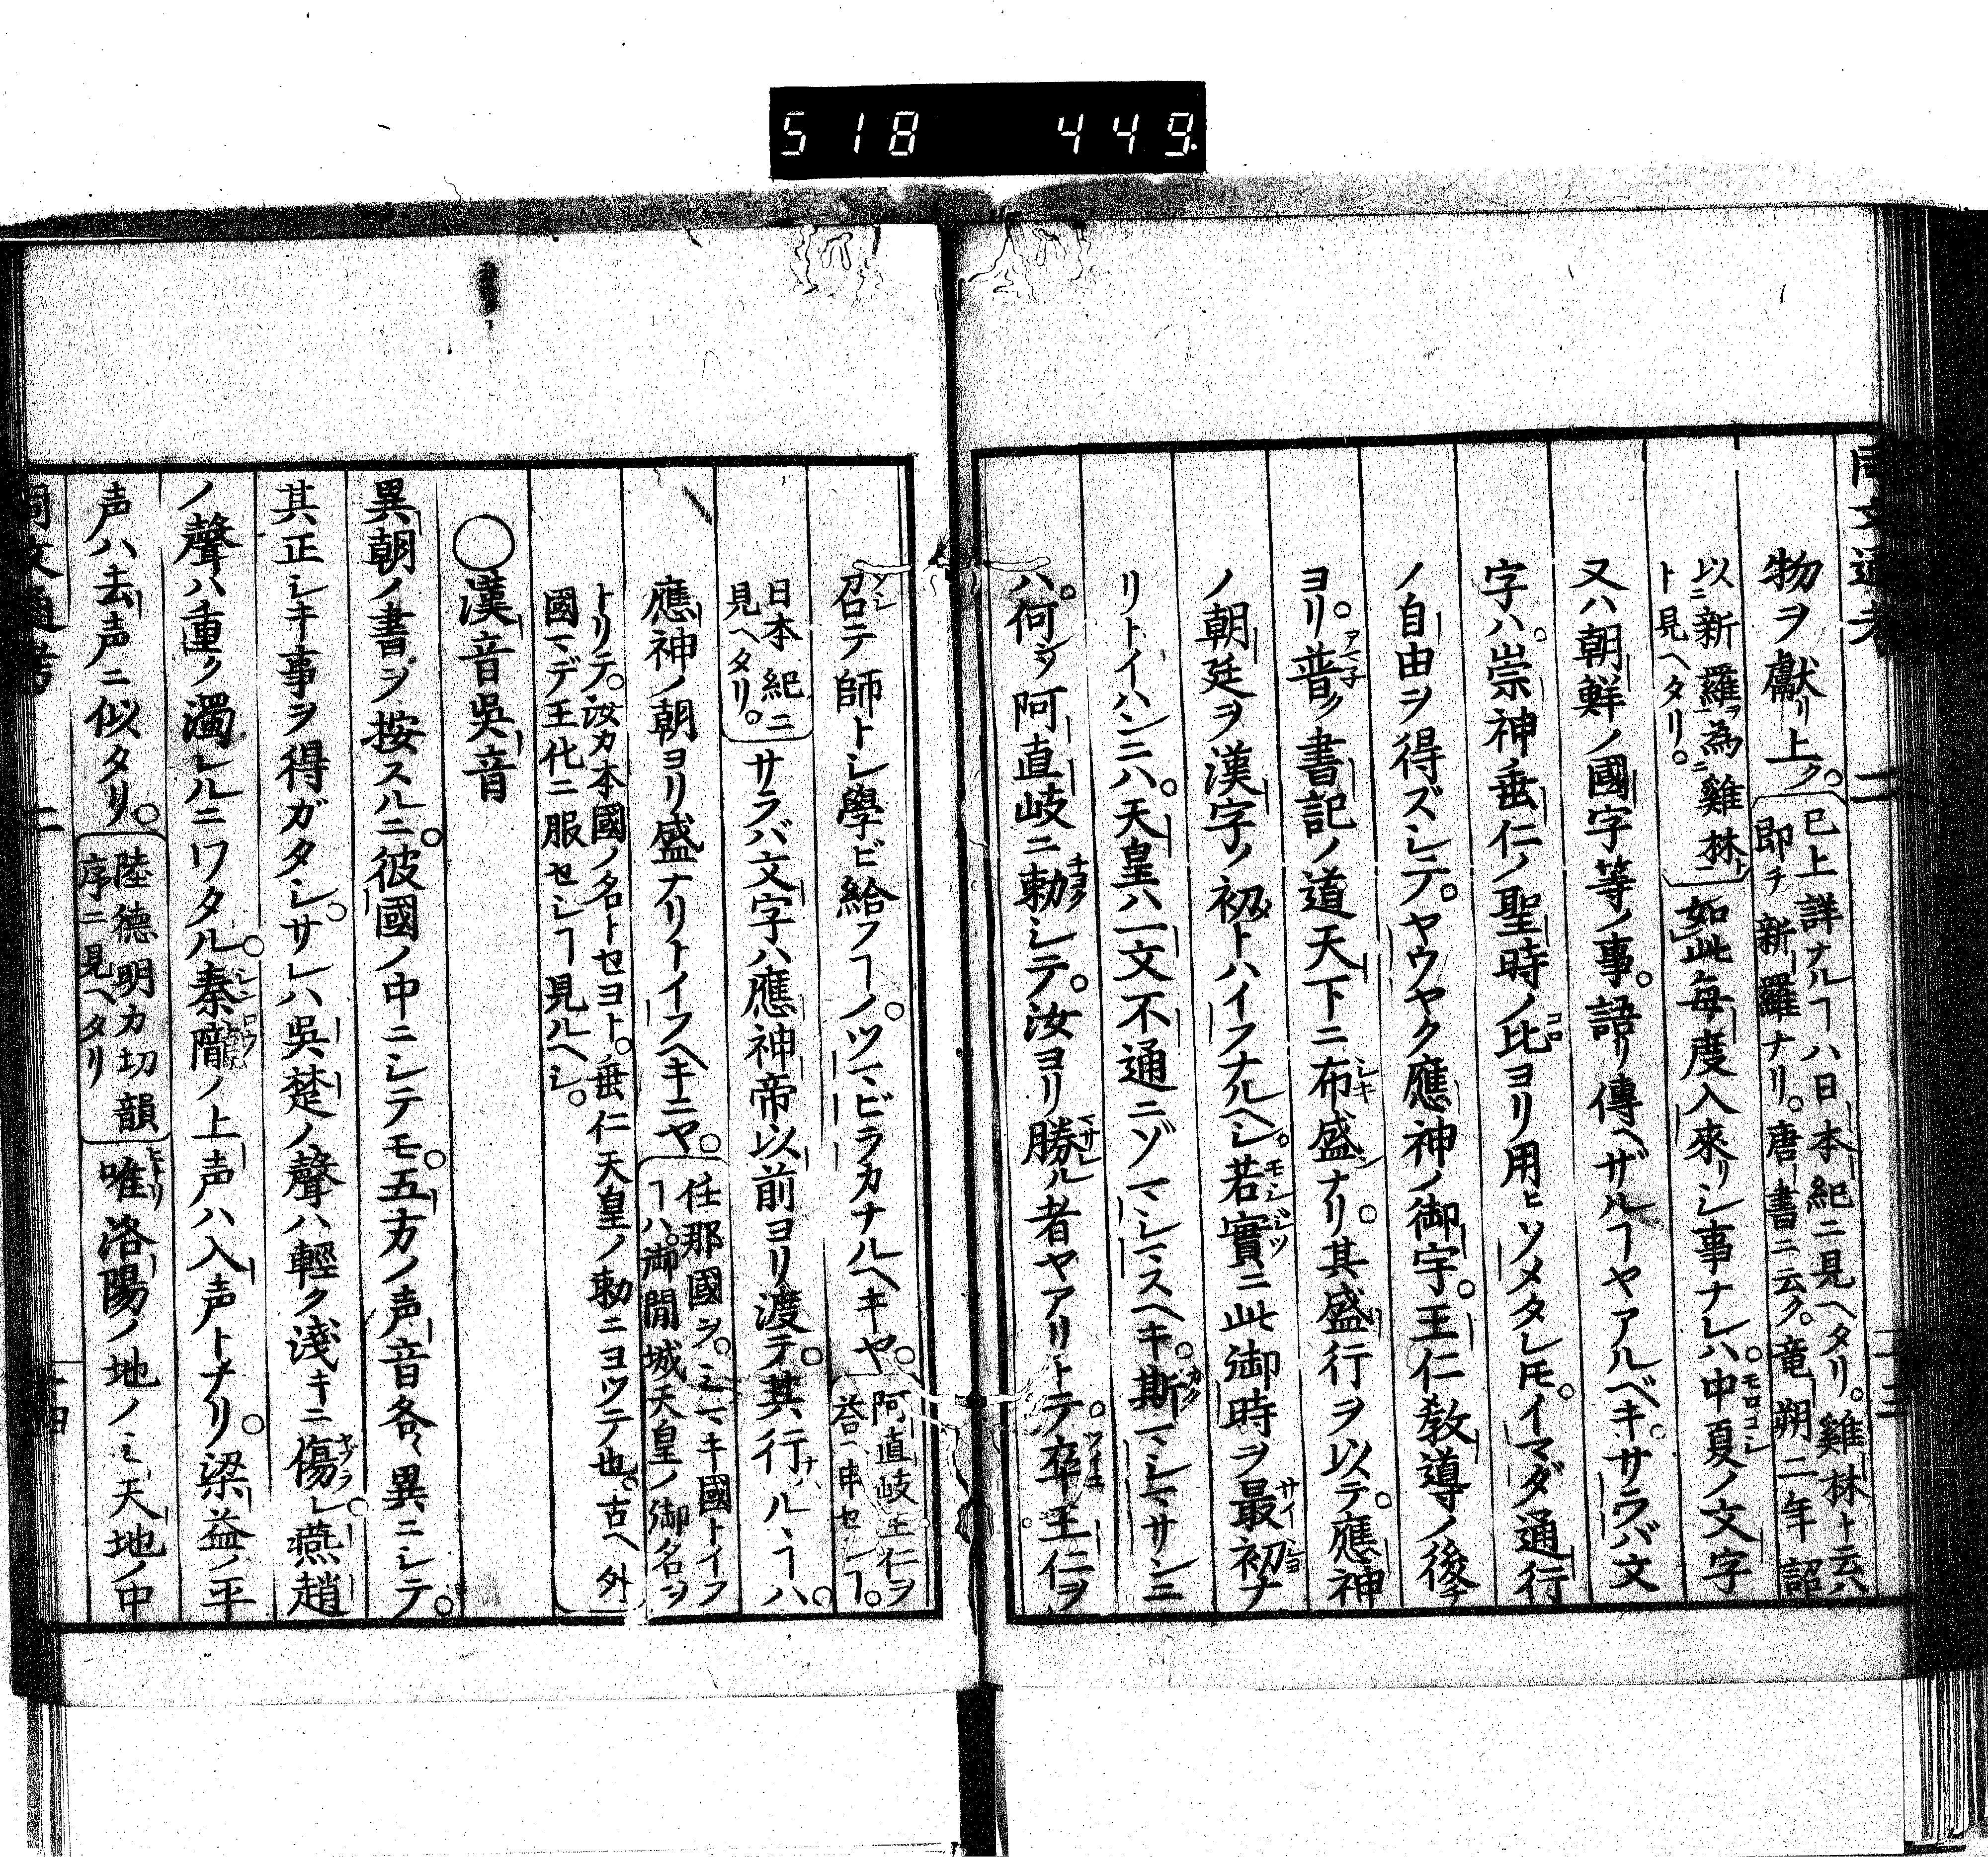 518 449
同文通考 二 十三
物ヲ獻リ上ク。已上詳ナルヿハ日本紀ニ見ヘタリ。雞林ト云ハ
即チ新羅ナリ。唐書ニ云ク。竜朔二年詔
以新羅為雞林ト見ヘタリ。如此毎度入來リシ事ナレハ。中夏ノ文字
又ハ朝鮮ノ國字等ノ事。語リ傳ヘザルヿヤアルベキ。サラバ文
字ハ。崇神垂仁ノ聖時ノ比ヨリ用ヒソメタレ𪜈。イマダ通行
ノ自由ヲ得ズシテ。ヤウヤク應神ノ御宇。王仁教導ノ後
ヨリ。普ク書記ノ道天下ニ布盛ナリ。其盛行ヲ以テ。應神
ノ朝廷ヲ漢字ノ初トハイフナルヘシ。若實ニ此御時ヲ最初ナ
リトイハンニハ。天皇ハ一文不通ニゾマシマスヘキ。斯マシマサンニ
ハ。何ゾ阿直岐ニ勅シテ。汝ヨリ勝ル者ヤアリトテ。卒王仁ヲ
召テ師トシ學ビ給フヿノ。ツマビラカナルヘキヤ。阿直岐王仁ヲ
答ヘ申セシヿ。
日本紀ニ見ヘタリ。サラバ文字ハ應神帝以前ヨリ渡テ。其行ルヽヿハ。
應神ノ朝ヨリ盛ナリトイフヘキニヤ。任那國ヲ。ミマキ國トイフ
ヿハ。御間城天皇ノ御名ヲ
トリテ。汝カ本國ノ名トセヨト。垂仁天皇ノ勅ニヨツテ也。古ヘ外
國マデ王化ニ服セシヿ見ルヘシ。
○漢音吳音
異朝ノ書ヲ按スルニ。彼國ノ中ニシテモ。五方ノ声音各〻異ニシテ。
其正シキ事ヲ得ガタシ。サレハ吳楚ノ聲ハ輕ク淺キニ傷レ。燕趙
ノ聲ハ重ク濁レルニワタル。秦隴ノ上声ハ入声トナリ。梁益ノ平
声ハ去声ニ似タリ。陸德明カ切韻
序ニ見ヘタリ
唯洛陽ノ地ノミ天地ノ中
同文通考 二 十四